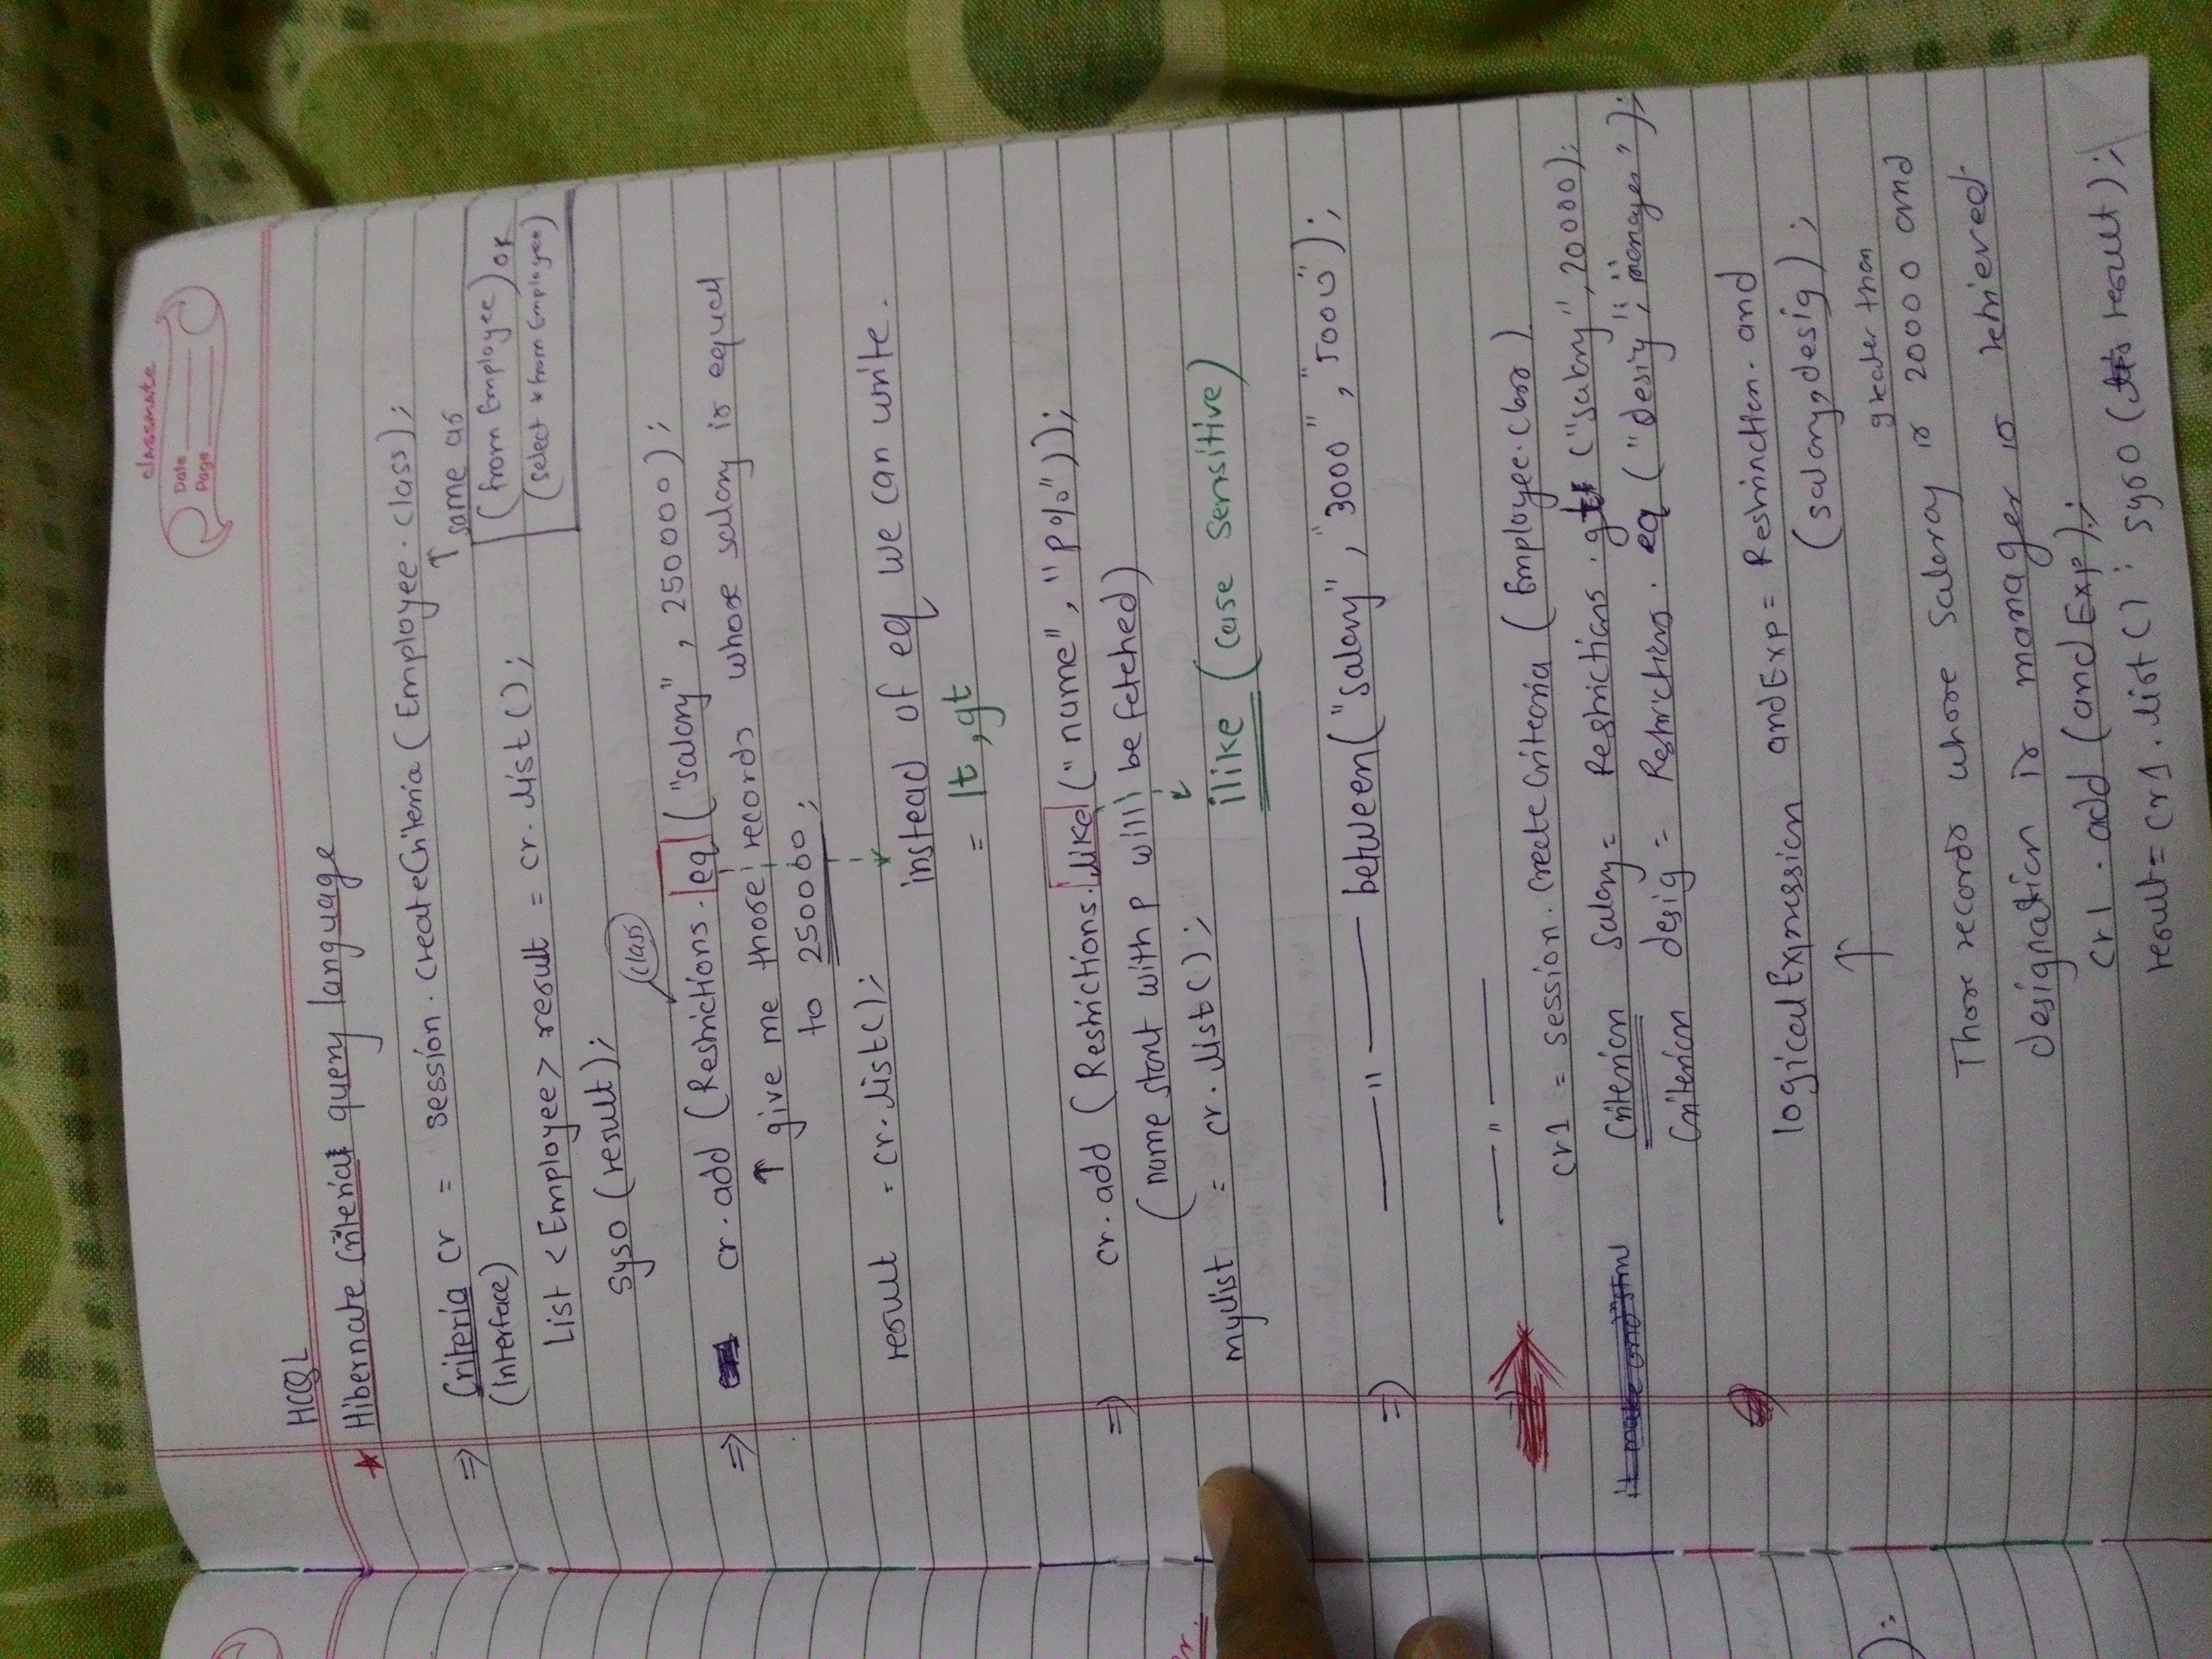 classmate
Date
Page
HCQL
★ Hibernate Criteria query language
⇒ Criteria cr = session.createCriteria(Employee.class);
(Interface)
↑ same as
(from Employee) or
(select * from Employee)
List <Employee> result = cr.list();
syso (result);
(class)
⇒ cr.add (Restrictions.eq("salary", 250000);
↑ give me those records whose salary is equal
to 250000;
result = cr.list();
instead of eq we can write.
= lt, gt
⇒ cr.add (Restrictions.like("name", "p%"));
(name start with p will be fetched)
mylist = cr.list();
ilike (case sensitive)
⇒ —— " —— between("salary", "3000", "5000");
—— " ——
cr1 = session.createCriteria (Employee.class)
Criterion salary = Restrictions.gt ("salary", 20000);
Criterion desig = Restrictions.eq ("desig", "manager");
logicalExpression andExp = Restrinction.and
(salary, desig);
↑
greater than
Those records whose saleray is 20000 and
designation is manager is retrieved
cr1.add (andExp);
result = cr1.list() ; syso (result);
er.
):